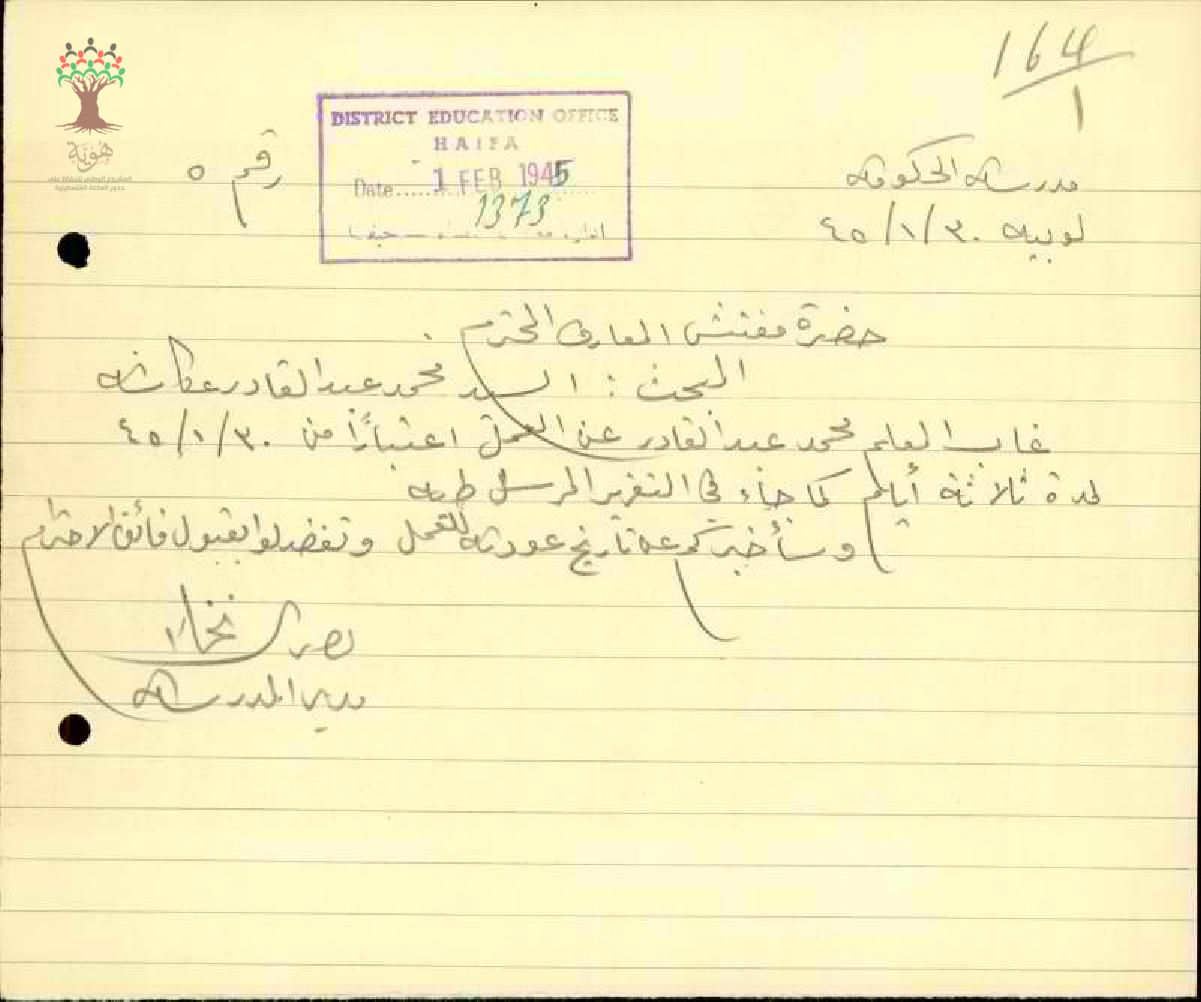 164
1
هوية
المشروع الوطني للحفاظ على
جذور العائلة الفلسطينية
DISTRICT EDUCATION OFFICE
HAIFA
Date......1 FEB 1945......
1373
حيفا
رقم ٥
مدرسة الحكومة
لوبيه ٣٠/١/٤٥
حضرة مفتش المعارف المحترم
البحث : السيد محمد عبد القادر عكاشه
غاب المعلم محمد عبد القادر عن العمل اعتبارًا من ٣٠/١/٤٥
لمدة ثلاثة أيام كما جاء في التقرير المرسل طيه
وسأخبركم عن تاريخ عودته للعمل وتفضلوا بقبول فائق الاحترام
مدير المدرسة